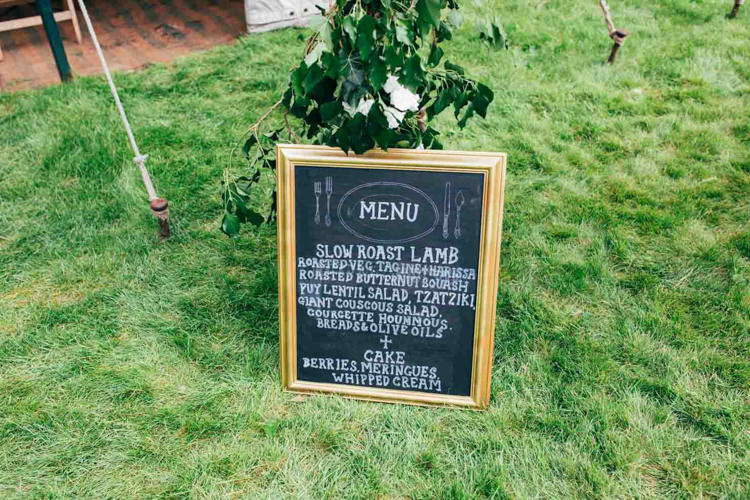 MENU
SLOW ROAST LAMB
ROASTED VEG. TAGINE + HARISSA
ROASTED BUTTERNUT SQUASH
PUY LENTIL SALAD, TZATZIKI,
GIANT COUSCOUS SALAD,
COURGETTE HOUMMOUS,
BREADS & OLIVE OILS
+
CAKE
BERRIES, MERINGUES,
WHIPPED CREAM